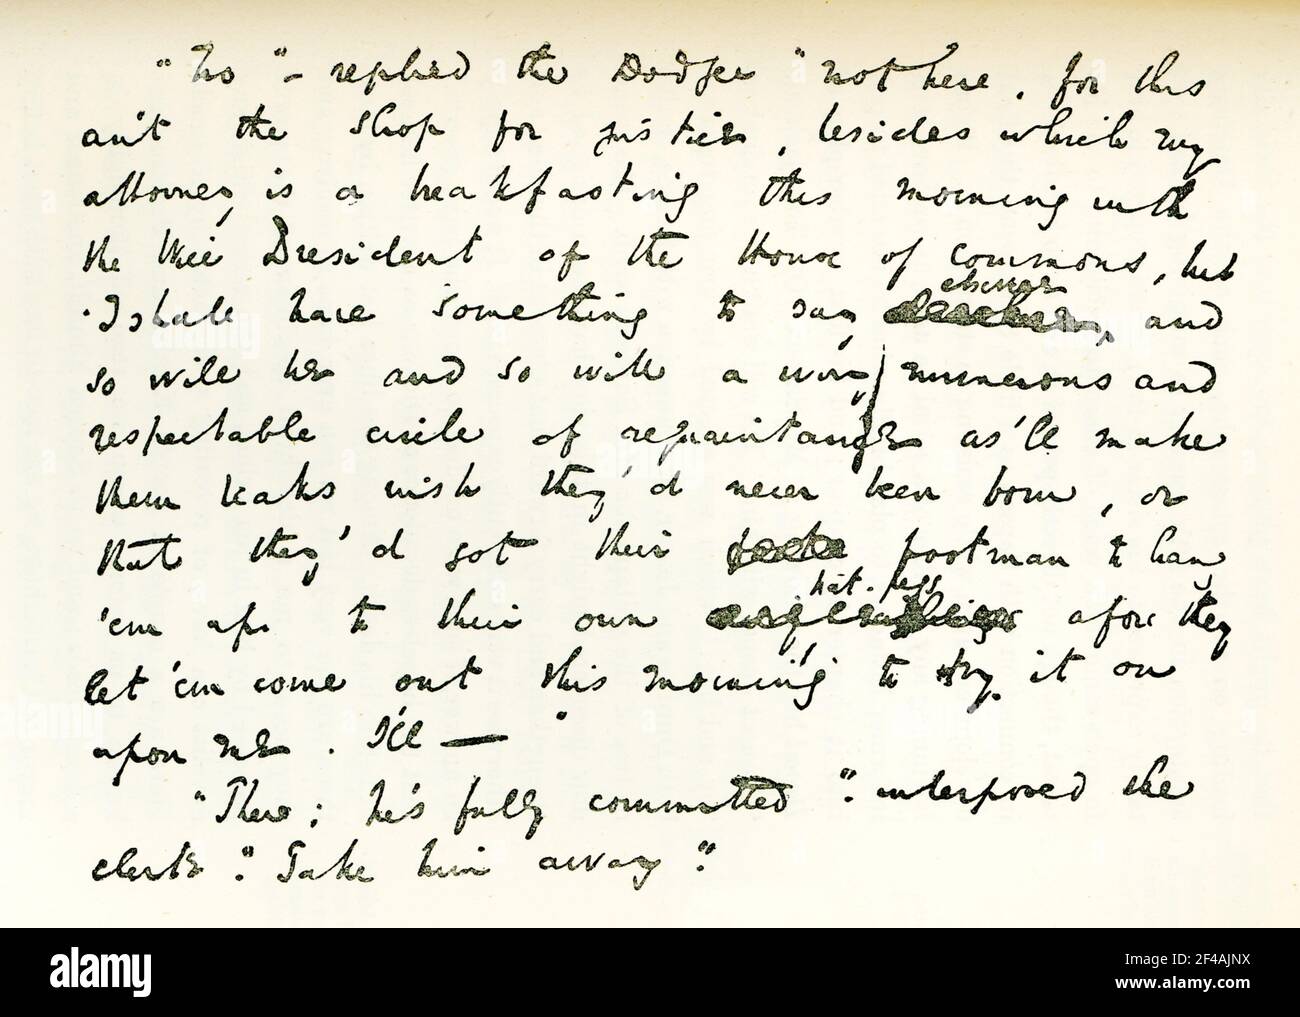 "No" – replied the Dodger "not here, for this
ain't the shop for justice, besides which my
attorney is a breakfasting this morning with
the Wice President of the House of Commons, but
I shall have something to say elsewhere, and
so will he and so will a wery numerous and
respectable circle of acquaintance as'll make
them beaks wish they'd never been born, or
that they'd got their footman to hang
'em up to their own hat-pegs afore they
let 'em come out this morning to try it on
upon me. I'll —"
"There; he's fully committed". interposed the
clerk. "Take him away".
alamy
Image ID: 2F4AJNX
www.alamy.com